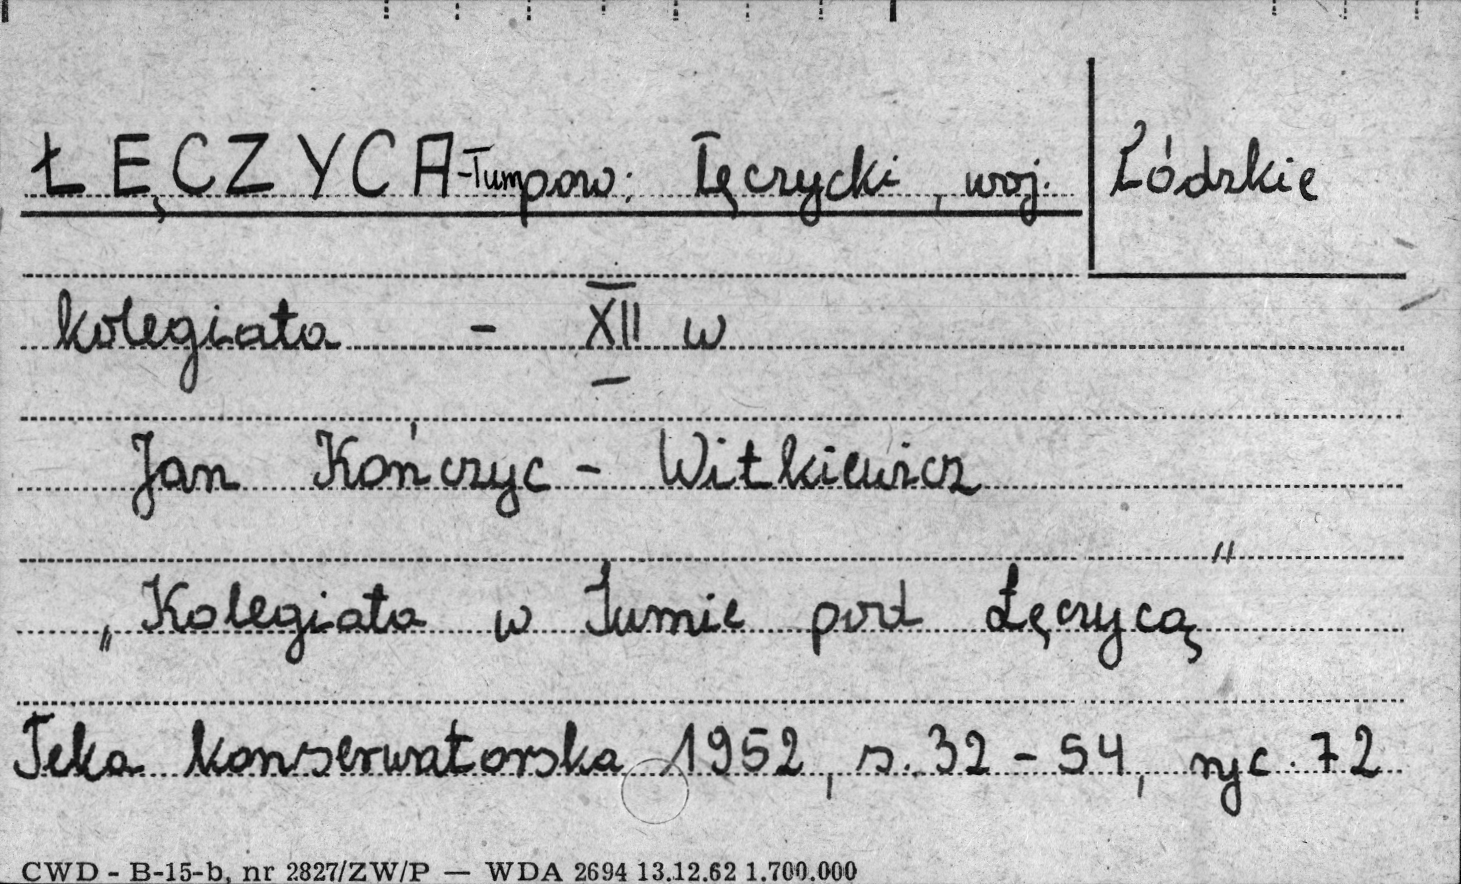 ŁĘCZYCA-Tum pow: Łęczycki, woj. Łódzkie
kolegiata - XII w
Jan Kończyc - Witkiewicz
„Kolegiata w Tumie pod Łęczycą"
Teka konserwatorska 1952, s. 32 - 54, ryc. 72
CWD - B-15-b, nr 2827/ZW/P — WDA 2694 13.12.62 1.700.000